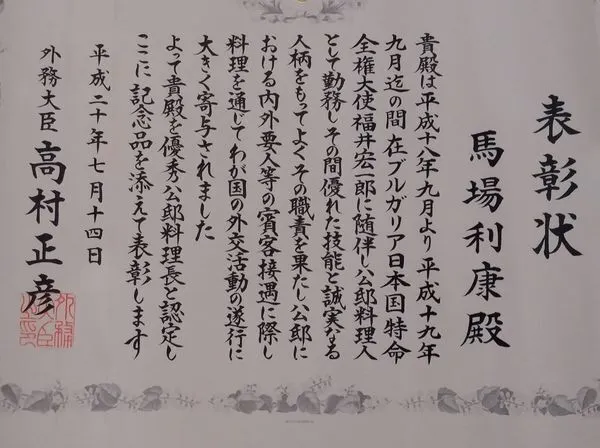 表彰状
馬場利康殿
貴殿は平成十八年九月より平成十九年
九月迄の間在ブルガリア日本国特命
全権大使福井宏一郎に随伴し公邸料理人
として勤務しその間優れた技能と誠実なる
人柄をもってよくその職責を果たし公邸に
おける内外要人等の賓客接遇に際し
料理を通じてわが国の外交活動の遂行に
大きく寄与されました
よって貴殿を優秀公邸料理長と認定し
ここに記念品を添えて表彰します
平成二十年七月十四日
外務大臣 高村正彦